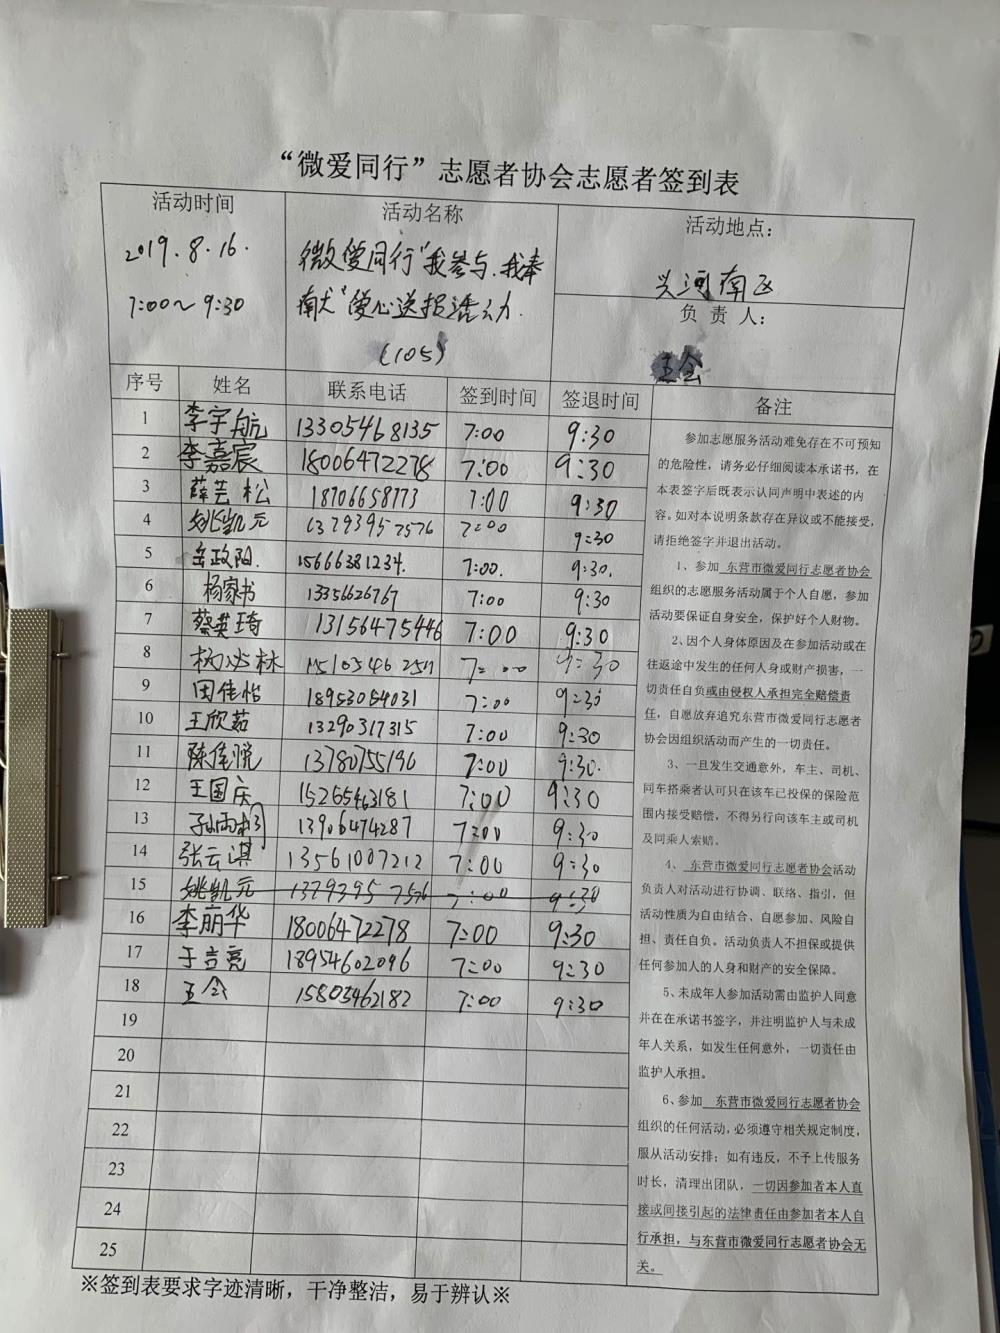 “微爱同行”志愿者协会志愿者签到表
活动时间
2019.8.16.
7:00~9:30
活动名称
微爱同行"我参与.我奉
献"爱心送报活动.
(105)
活动地点：
兴河南区
负 责 人：
王会
序号 姓名 联系电话 签到时间 签退时间 备注
1 李宇航 13305468135 7:00 9:30
2 李嘉宸 18006472278 7:00 9:30
3 薛芸松 18706658773 7:00 9:30
4 姚凯元 13793957576 7:00 9:30
5 岳政阳. 15666381234. 7:00. 9:30.
6 杨家书 13356626767 7:00 9:30
7 蔡英琦 13156475446 7:00 9:30
8 杨冰林 7:00 9:30
9 田佳怡 18953054031 7:00 9:30
10 王欣茹 13290317315 7:00 9:30
11 陈佳悦 13780755196 7:00 9:30.
12 王国庆 15265463181 7:00 9:30
13 孙雨桐 13906474287 7:00 9:30
14 张云淇 13561007212 7:00 9:30
15 姚凯元 13793957576 7:00 9:30
16 李丽华 18006472278 7:00 9:30
17 于吉亮 18954602096 7:00 9:30
18 王会 15805462182 7:00 9:30
19
20
21
22
23
24
25
参加志愿服务活动难免存在不可预知
的危险性，请务必仔细阅读本承诺书，在
本表签字后既表示认同声明中表述的内
容。如对本说明条款存在异议或不能接受，
请拒绝签字并退出活动。
1、参加 东营市微爱同行志愿者协会
组织的志愿服务活动属于个人自愿，参加
活动要保证自身安全，保护好个人财物。
2、因个人身体原因及在参加活动或在
往返途中发生的任何人身或财产损害，一
切责任自负或由侵权人承担完全赔偿责
任，自愿放弃追究东营市微爱同行志愿者
协会因组织活动而产生的一切责任。
3、一旦发生交通意外，车主、司机、
同车搭乘者认可只在该车已投保的保险范
围内接受赔偿，不得另行向该车主或司机
及同乘人索赔。
4、 东营市微爱同行志愿者协会活动
负责人对活动进行协调、联络、指引，但
活动性质为自由结合、自愿参加、风险自
担、责任自负。活动负责人不担保或提供
任何参加人的人身和财产的安全保障。
5、未成年人参加活动需由监护人同意
并在在承诺书签字，并注明监护人与未成
年人关系，如发生任何意外，一切责任由
监护人承担。
6、参加 东营市微爱同行志愿者协会
组织的任何活动，必须遵守相关规定制度，
服从活动安排；如有违反，不予上传服务
时长，清理出团队，一切因参加者本人直
接或间接引起的法律责任由参加者本人自
行承担，与东营市微爱同行志愿者协会无
关。
※签到表要求字迹清晰，干净整洁，易于辨认※